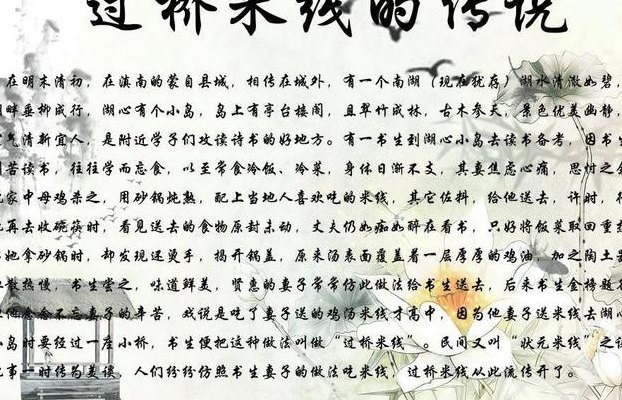 过桥米线的传说
在明末清初，在滇南的蒙自县城，相传在城外，有一个南湖（现在犹存）湖水清澈如碧，
畔垂柳成行，湖心有个小岛，岛上有亭台楼阁，且翠竹成林，古木参天，景色优美幽静，
气清新宜人，是附近学子们攻读诗书的好地方。有一书生到湖心小岛去读书备考，因书生
苦读书，往往学而忘食，以至常食冷饭、冷菜，身休日渐不支，其妻焦虑心痛，思忖之余
家中母鸡杀之，用砂锅炖熟，配上当地人喜欢吃的米线，其它佐料，给他送去，许时，待
再去收碗筷时，看见送去的食物原封未动，丈夫仍如痴如醉在看书，只好将饭菜取回重热
她拿砂锅时，却发现还烫手，揭开锅盖，原来汤表面覆盖着一层厚厚的鸡油，加之陶土器
散热慢，书生尝之，味道鲜美，贤惠的妻子常常仿此做法给书生送去，后来书生金榜题名
他念念不忘妻子的辛苦，戏说是吃了妻子送的鸡汤米线才高中，因为他妻子送米线去湖心
小岛时要经过一座小桥，书生便把这种做法叫做“过桥米线”。民间又叫“状元米线”之说
事一时传为美谈，人们纷纷仿照书生妻子的做法吃米线，过桥米线从此流传开了。